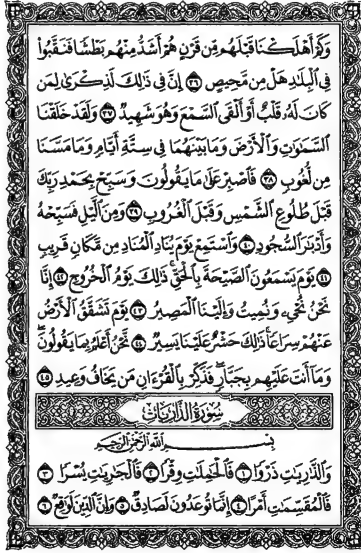 وَكَمْ أَهْلَكْنَا قَبْلَهُم مِّن قَرْنٍ هُمْ أَشَدُّ مِنْهُم بَطْشًا فَنَقَّبُوا۟
فِى ٱلْبِلَٰدِ هَلْ مِن مَّحِيصٍ ٣٦ إِنَّ فِى ذَٰلِكَ لَذِكْرَىٰ لِمَن
كَانَ لَهُۥ قَلْبٌ أَوْ أَلْقَى ٱلسَّمْعَ وَهُوَ شَهِيدٌ ٣٧ وَلَقَدْ خَلَقْنَا
ٱلسَّمَٰوَٰتِ وَٱلْأَرْضَ وَمَا بَيْنَهُمَا فِى سِتَّةِ أَيَّامٍ وَمَا مَسَّنَا
مِن لُّغُوبٍ ٣٨ فَٱصْبِرْ عَلَىٰ مَا يَقُولُونَ وَسَبِّحْ بِحَمْدِ رَبِّكَ
قَبْلَ طُلُوعِ ٱلشَّمْسِ وَقَبْلَ ٱلْغُرُوبِ ٣٩ وَمِنَ ٱلَّيْلِ فَسَبِّحْهُ
وَأَدْبَٰرَ ٱلسُّجُودِ ٤٠ وَٱسْتَمِعْ يَوْمَ يُنَادِ ٱلْمُنَادِ مِن مَّكَانٍ قَرِيبٍ
٤١ يَوْمَ يَسْمَعُونَ ٱلصَّيْحَةَ بِٱلْحَقِّ ذَٰلِكَ يَوْمُ ٱلْخُرُوجِ ٤٢ إِنَّا
نَحْنُ نُحْىِۦ وَنُمِيتُ وَإِلَيْنَا ٱلْمَصِيرُ ٤٣ يَوْمَ تَشَقَّقُ ٱلْأَرْضُ
عَنْهُمْ سِرَاعًا ذَٰلِكَ حَشْرٌ عَلَيْنَا يَسِيرٌ ٤٤ نَّحْنُ أَعْلَمُ بِمَا يَقُولُونَ
وَمَآ أَنتَ عَلَيْهِم بِجَبَّارٍ فَذَكِّرْ بِٱلْقُرْءَانِ مَن يَخَافُ وَعِيدِ ٤٥
سُورَةُ الذَّارِيَات
بِسْمِ ٱللَّهِ ٱلرَّحْمَٰنِ ٱلرَّحِيمِ
وَٱلذَّٰرِيَٰتِ ذَرْوًا ١ فَٱلْحَٰمِلَٰتِ وِقْرًا ٢ فَٱلْجَٰرِيَٰتِ يُسْرًا ٣
فَٱلْمُقَسِّمَٰتِ أَمْرًا ٤ إِنَّمَا تُوعَدُونَ لَصَادِقٌ ٥ وَإِنَّ ٱلدِّينَ لَوَٰقِعٌ ٦